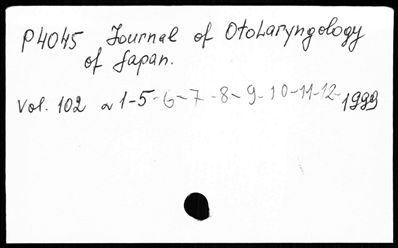 P4045 Journal of Otolaryngology
of Japan.
Vol. 102 N 1-5-6-7-8-9-10-11-12-1999